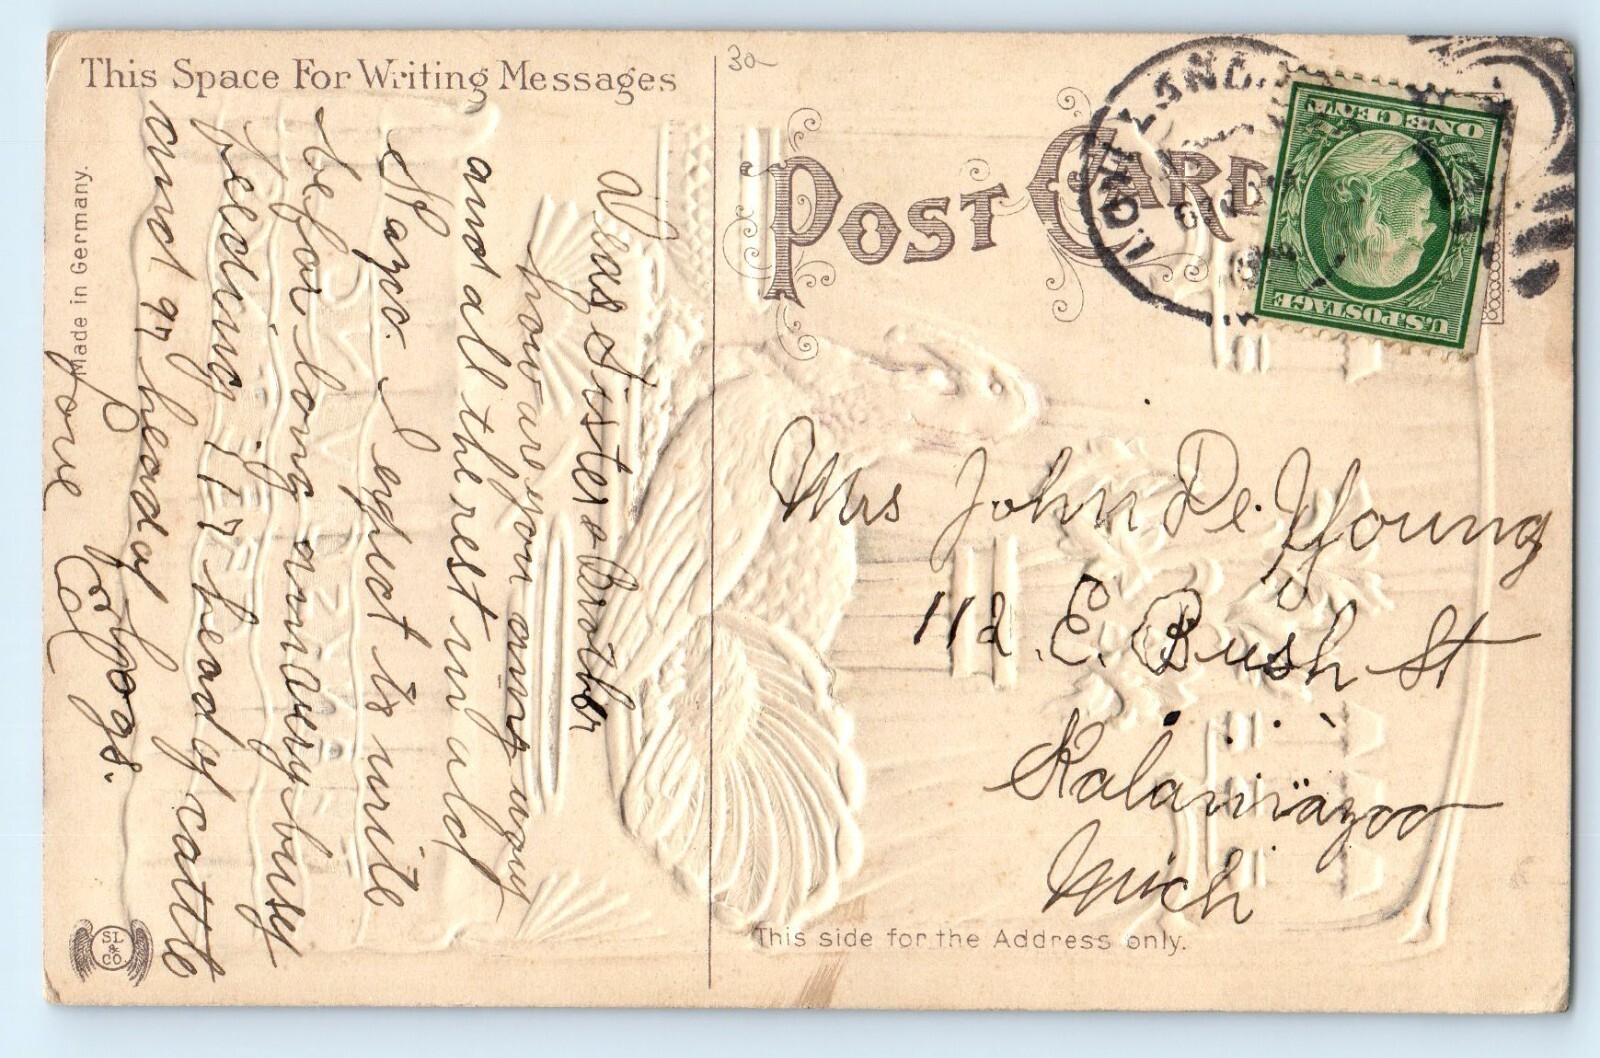 This Space For Writing Messages
30
POST CARD
HIGHLAND,
U.S.POSTAGE
ONE CENT
Made in Germany.
Dear Sister & Brother
how are you amy way
and all the rest in old
Kazoo. I expect to write
before long am very busy
feeding 117 head of cattle
and 97 head of
for hogs.
Joe
Mrs John De. Young
112 E. Bush St
Kalamazoo
Mich
This side for the Address only.
SL
&
CO.